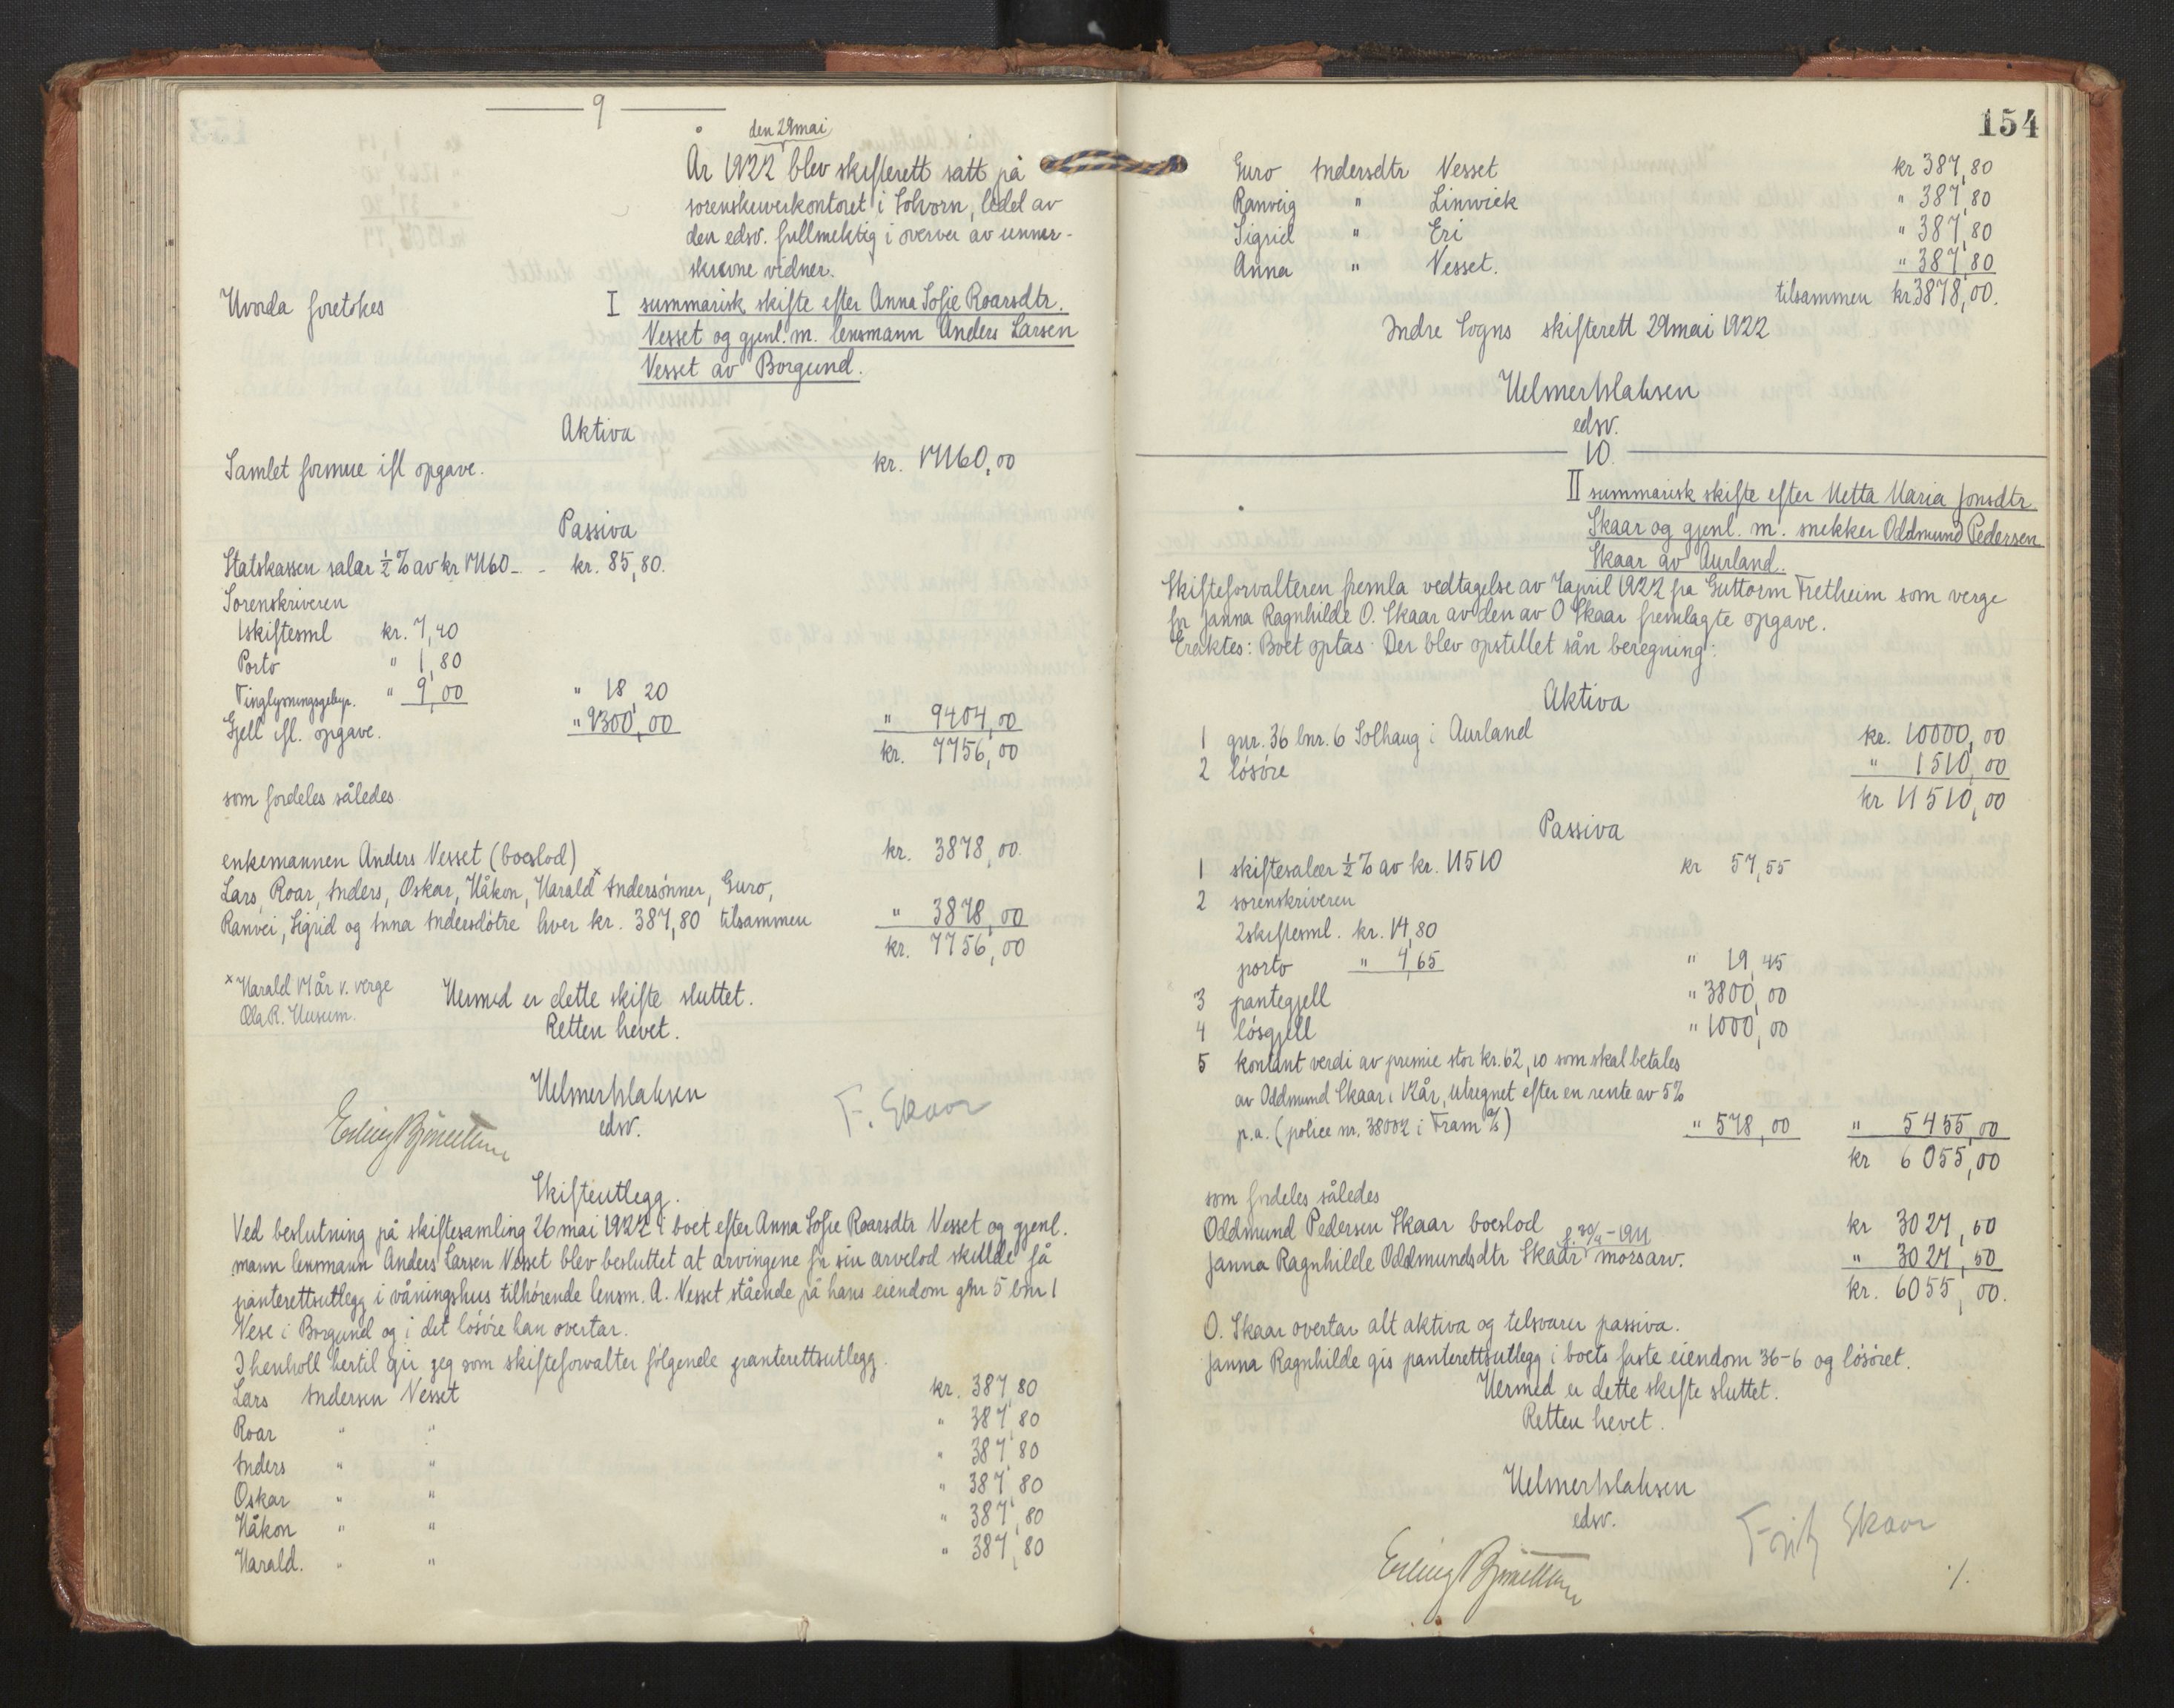 9
den 29 mai
År 1922 blev skifterett satt på
sorenskriverkontoret i Solvorn, ledet av
den edsv. fullmektig i overvær av unner-
skrevne vidner.
Hvorda foretokes I summarisk skifte efter Anna Sofie Roarsdtr.
Vesset og gjenl. m. lensmann Anders Larsen
Vesset av Borgund.
Aktiva
Samlet formue ifl opgave. kr. 17160,00
Passiva
Statskassen salær ½ % av kr 17160 - - kr. 85,80.
Sorenskriveren
1 skiftesml kr. 7,40
Porto " 1,80
Tinglysningsgebyr. " 9,00 " 18,20
Gjell ifl. opgave. " 9300,00 " 9404,00
kr. 7756,00
som fordeles således
enkemannen Anders Vesset (boeslod) kr. 3878,00.
Lars, Roar, Anders, Oskar, Håkon, Harald x Andersønner, Guro,
Ranvei, Sigrid og Anna Andersdøtre hver kr. 387,80 tilsammen " 3878,00
kr. 7756,00
x Harald 17 år v. verge
Ola R. Husum.
Hermed er dette skifte sluttet.
Retten hevet.
Helmer Islaksen
edsv.
F. Skaar
Skifteutlegg.
Ved beslutning på skiftesamling 26 mai 1922 i boet efter Anna Sofie Roarsdtr Vesset og gjenl.
mann lensmann Anders Larsen Vesset blev besluttet at arvingene for sin arvelod skulde få
panterettsutlegg i våningshus tilhørende lensm. A. Vesset stående på hans eiendom gnr 5 bnr 1
Vese i Borgund og i det løsøre han overtar.
I henholl hertil gir jeg som skifteforvalter følgende panterettsutlegg.
Lars Andersen Vesset kr. 387,80
Roar " " " 387,80
Anders " " " 387,80
Oskar " " " 387,80
Håkon " " " 387,80
Harald. " " " 387,80
154
Guro Andersdtr Vesset kr 387,80
Ranveig " Linwick " 387,80
Sigrid " Eri " 387,80
Anna " Vesset. " 387,80
tilsammen kr 3878,00.
Indre Sogns skifterett 29 mai 1922
Helmer Islaksen
edsv.
10.
II summarisk skifte efter Metta Maria Jonsdtr
Skaar og gjenl. m. snekker Oddmund Pedersen
Skaar av Aurland.
Skifteforvalteren fremla vedtagelse av 7 april 1922 fra Guttorm Fretheim som verge
for Janna Ragnhilde O. Skaar av den av O Skaar fremlagte opgave.
Eraktes: Boet optas. Der blev opstillet sån beregning:
Aktiva
1 gnr. 36 bnr. 6 Solhaug i Aurland kr. 10000,00
2 løsøre " 1510,00
kr 11510,00
Passiva
1 skiftesalær ½ % av kr. 11510 kr 57,55
2 sorenskriveren
2 skiftesml. kr. 14,80
porto " 4,65 " 19,45
3 pantegjell " 3800,00
4 løsgjell " 1000,00
5 kontant verdi av premie stor kr. 62,10 som skal betales
av Oddmund Skaar i 12 år, utregnet efter en rente av 5%
p.a. (police nr. 38002 i Fram A/S) " 578,00 " 5455,00
kr 6055,00
som fordeles således
Oddmund Pedersen Skaar boeslod kr 3027,50
f. 30/4 - 1911
Janna Ragnhilde Oddmundsdtr Skaar morsarv. " 3027,50
kr. 6055,00.
O. Skaar overtar alt aktiva og tilsvarer passiva.
Janna Ragnhilde gis panterettsutlegg i boets faste eiendom 36-6 og løsøret.
Hermed er dette skifte sluttet.
Retten hevet.
Helmer Islaksen
edsv.
Fritz Skaar
./.